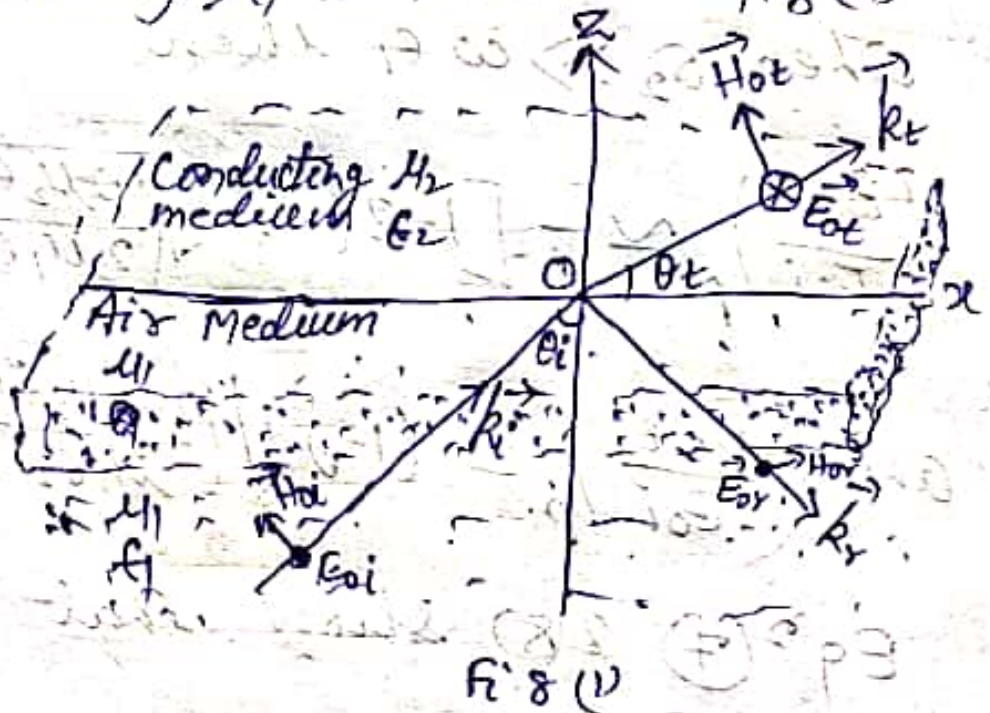 Z
H⃗ot
k⃗t
Conducting μ2
medium ϵ2
E⃗ot
O
θt
x
Air Medium
θi
μ1
k⃗i
H⃗oi
E⃗or
H⃗or
k⃗r
μ1
ϵ1
Eoi
Fig (1)